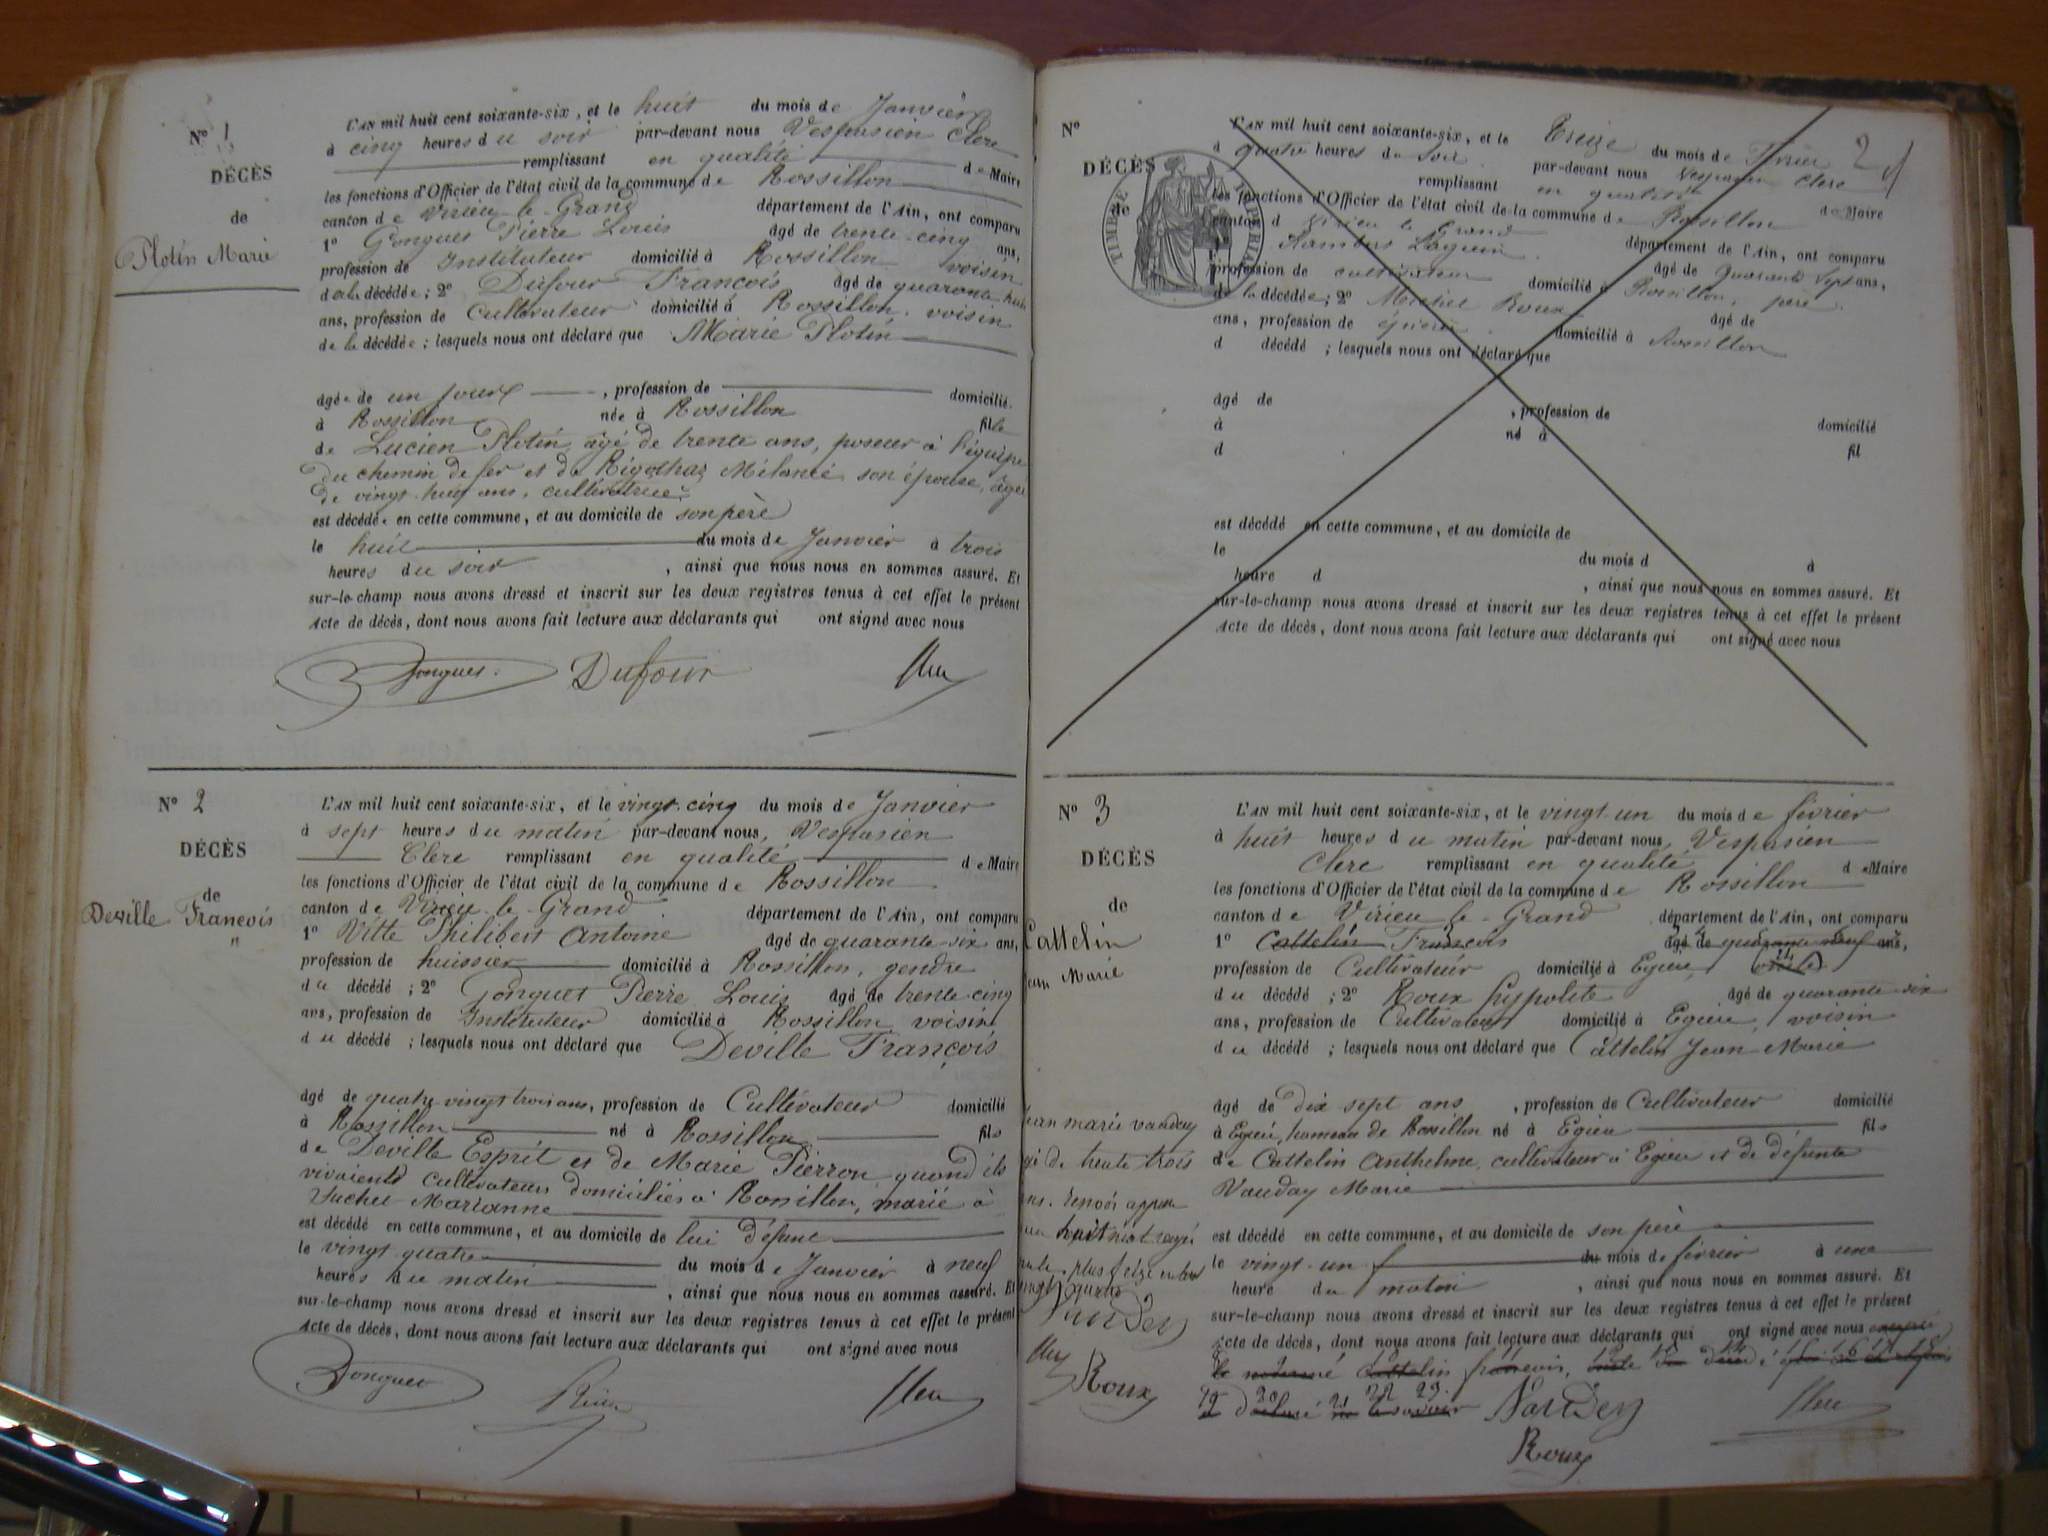 Nº 1
DÉCÈS
de
Plotin Marie
L'AN mil huit cent soixante-six, et le huit du mois de Janvier
à cinq heures du soir par-devant nous Vespasien Clerc
remplissant en qualité de Maire
les fonctions d'Officier de l'état civil de la commune de Rossillon
canton de Virieu-le-Grand département de l'Ain, ont comparu
1º Gonguet Pierre Louis âgé de trente-cinq ans,
profession de Instituteur domicilié à Rossillon voisin
de la décédée; 2º Dufour François âgé de quarante huit
ans, profession de Cultivateur domicilié à Rossillon, voisin
de la décédée; lesquels nous ont déclaré que Marie Plotin
âgée de un jour, profession de domicilié
à Rossillon née à Rossillon fille
de Lucien Plotin, âgé de trente ans, poseur à l'équipe
du chemin de fer et de Mélanie son épouse, âgée
de vingt ans, cultivatrice
est décédée en cette commune, et au domicile de son père
le huit du mois de Janvier à trois
heures du soir, ainsi que nous nous en sommes assuré. Et
sur-le-champ nous avons dressé et inscrit sur les deux registres tenus à cet effet le présent
Acte de décès, dont nous avons fait lecture aux déclarants qui ont signé avec nous
Gonguet Dufour Clerc
Nº 2
DÉCÈS
de
Deville François
L'AN mil huit cent soixante-six, et le vingt-cinq du mois de Janvier
à sept heures du matin par-devant nous, Vespasien
Clerc remplissant en qualité de Maire
les fonctions d'Officier de l'état civil de la commune de Rossillon
canton de Virieu-le-Grand département de l'Ain, ont comparu
1º Vitte Philibert Antoine âgé de quarante-six ans,
profession de huissier domicilié à Rossillon, gendre
du décédé; 2º Gonguet Pierre Louis âgé de trente-cinq
ans, profession de Instituteur domicilié à Rossillon voisin
du décédé; lesquels nous ont déclaré que Deville François
âgé de quatre vingt trois ans, profession de Cultivateur domicilié
à Rossillon né à Rossillon fils
de Deville Esprit et de Marie Pierron quand ils
vivaient cultivateurs domiciliés à Rossillon, marié à
Suchet Marianne
est décédé en cette commune, et au domicile de lui défunt
le vingt quatre du mois de Janvier à neuf
heures du matin, ainsi que nous nous en sommes assuré. Et
sur-le-champ nous avons dressé et inscrit sur les deux registres tenus à cet effet le présent
Acte de décès, dont nous avons fait lecture aux déclarants qui ont signé avec nous
Gonguet Clerc
Nº
DÉCÈS
de
TIMBRE IMPÉRIAL
2
L'AN mil huit cent soixante-six, et le Treize du mois de
à quatre heures du soir par-devant nous Vespasien Clerc
remplissant en qualité de Maire
les fonctions d'Officier de l'état civil de la commune de Rossillon
canton d Virieu le Grand département de l'Ain, ont comparu
âgé de quarante sept ans,
profession de cultivateur domicilié à Rossillon, père
de la décédée; 2º Michel Roux âgé de
ans, profession de domicilié à Rossillon
d décédé; lesquels nous ont déclaré que
âgé de, profession de domicilié
à né à fil
d
est décédé en cette commune, et au domicile de
le du mois d à
heure d, ainsi que nous nous en sommes assuré. Et
sur-le-champ nous avons dressé et inscrit sur les deux registres tenus à cet effet le présent
Acte de décès, dont nous avons fait lecture aux déclarants qui ont signé avec nous
Nº 3
DÉCÈS
de
Cattelin
Jean Marie
L'AN mil huit cent soixante-six, et le vingt-un du mois de février
à huit heures du matin par-devant nous Vespasien
Clerc remplissant en qualité de Maire
les fonctions d'Officier de l'état civil de la commune de Rossillon
canton de Virieu-le-Grand département de l'Ain, ont comparu
1º Cattelin François âgé de quarante neuf ans,
profession de Cultivateur domicilié à Egieu, oncle
du décédé; 2º Roux hypolite âgé de quarante-six
ans, profession de Cultivateur domicilié à Egieu, voisin
du décédé; lesquels nous ont déclaré que Cattelin Jean Marie
âgé de dix sept ans, profession de Cultivateur domicilié
à Egieu, hameau de Rossillon né à Egieu fils
de Cattelin Anthelme, cultivateur à Egieu et de défunte
Vauday Marie
est décédé en cette commune, et au domicile de son père
le vingt-un du mois de février à une
heure du matin, ainsi que nous nous en sommes assuré. Et
sur-le-champ nous avons dressé et inscrit sur les deux registres tenus à cet effet le présent
Acte de décès, dont nous avons fait lecture aux déclarants qui ont signé avec nous
Cattelin françois
19 20 21 22 23
Clerc
Roux
Jean marie vauday
de trente trois
ans. Renvoi
huit mots rayés
nuls. plus
vingt quatre
Clerc
Roux